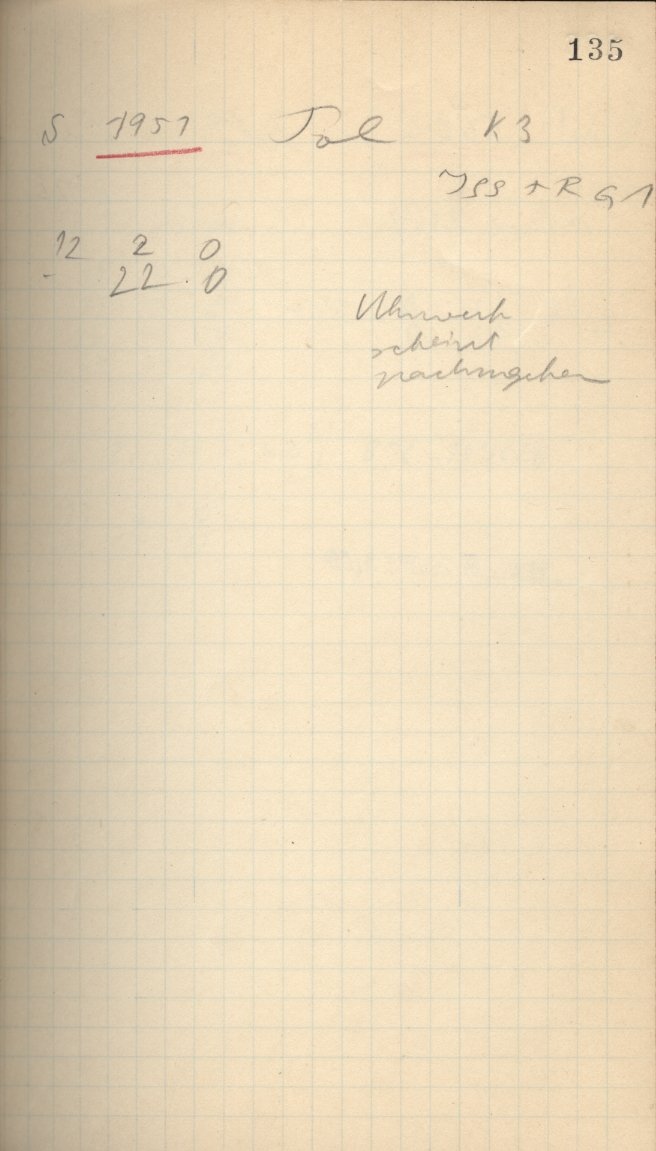 135
S 1951 Tol K3
Iss + R G1
12 2 0
22 0
Uhrwerk
scheint
nachzugehen